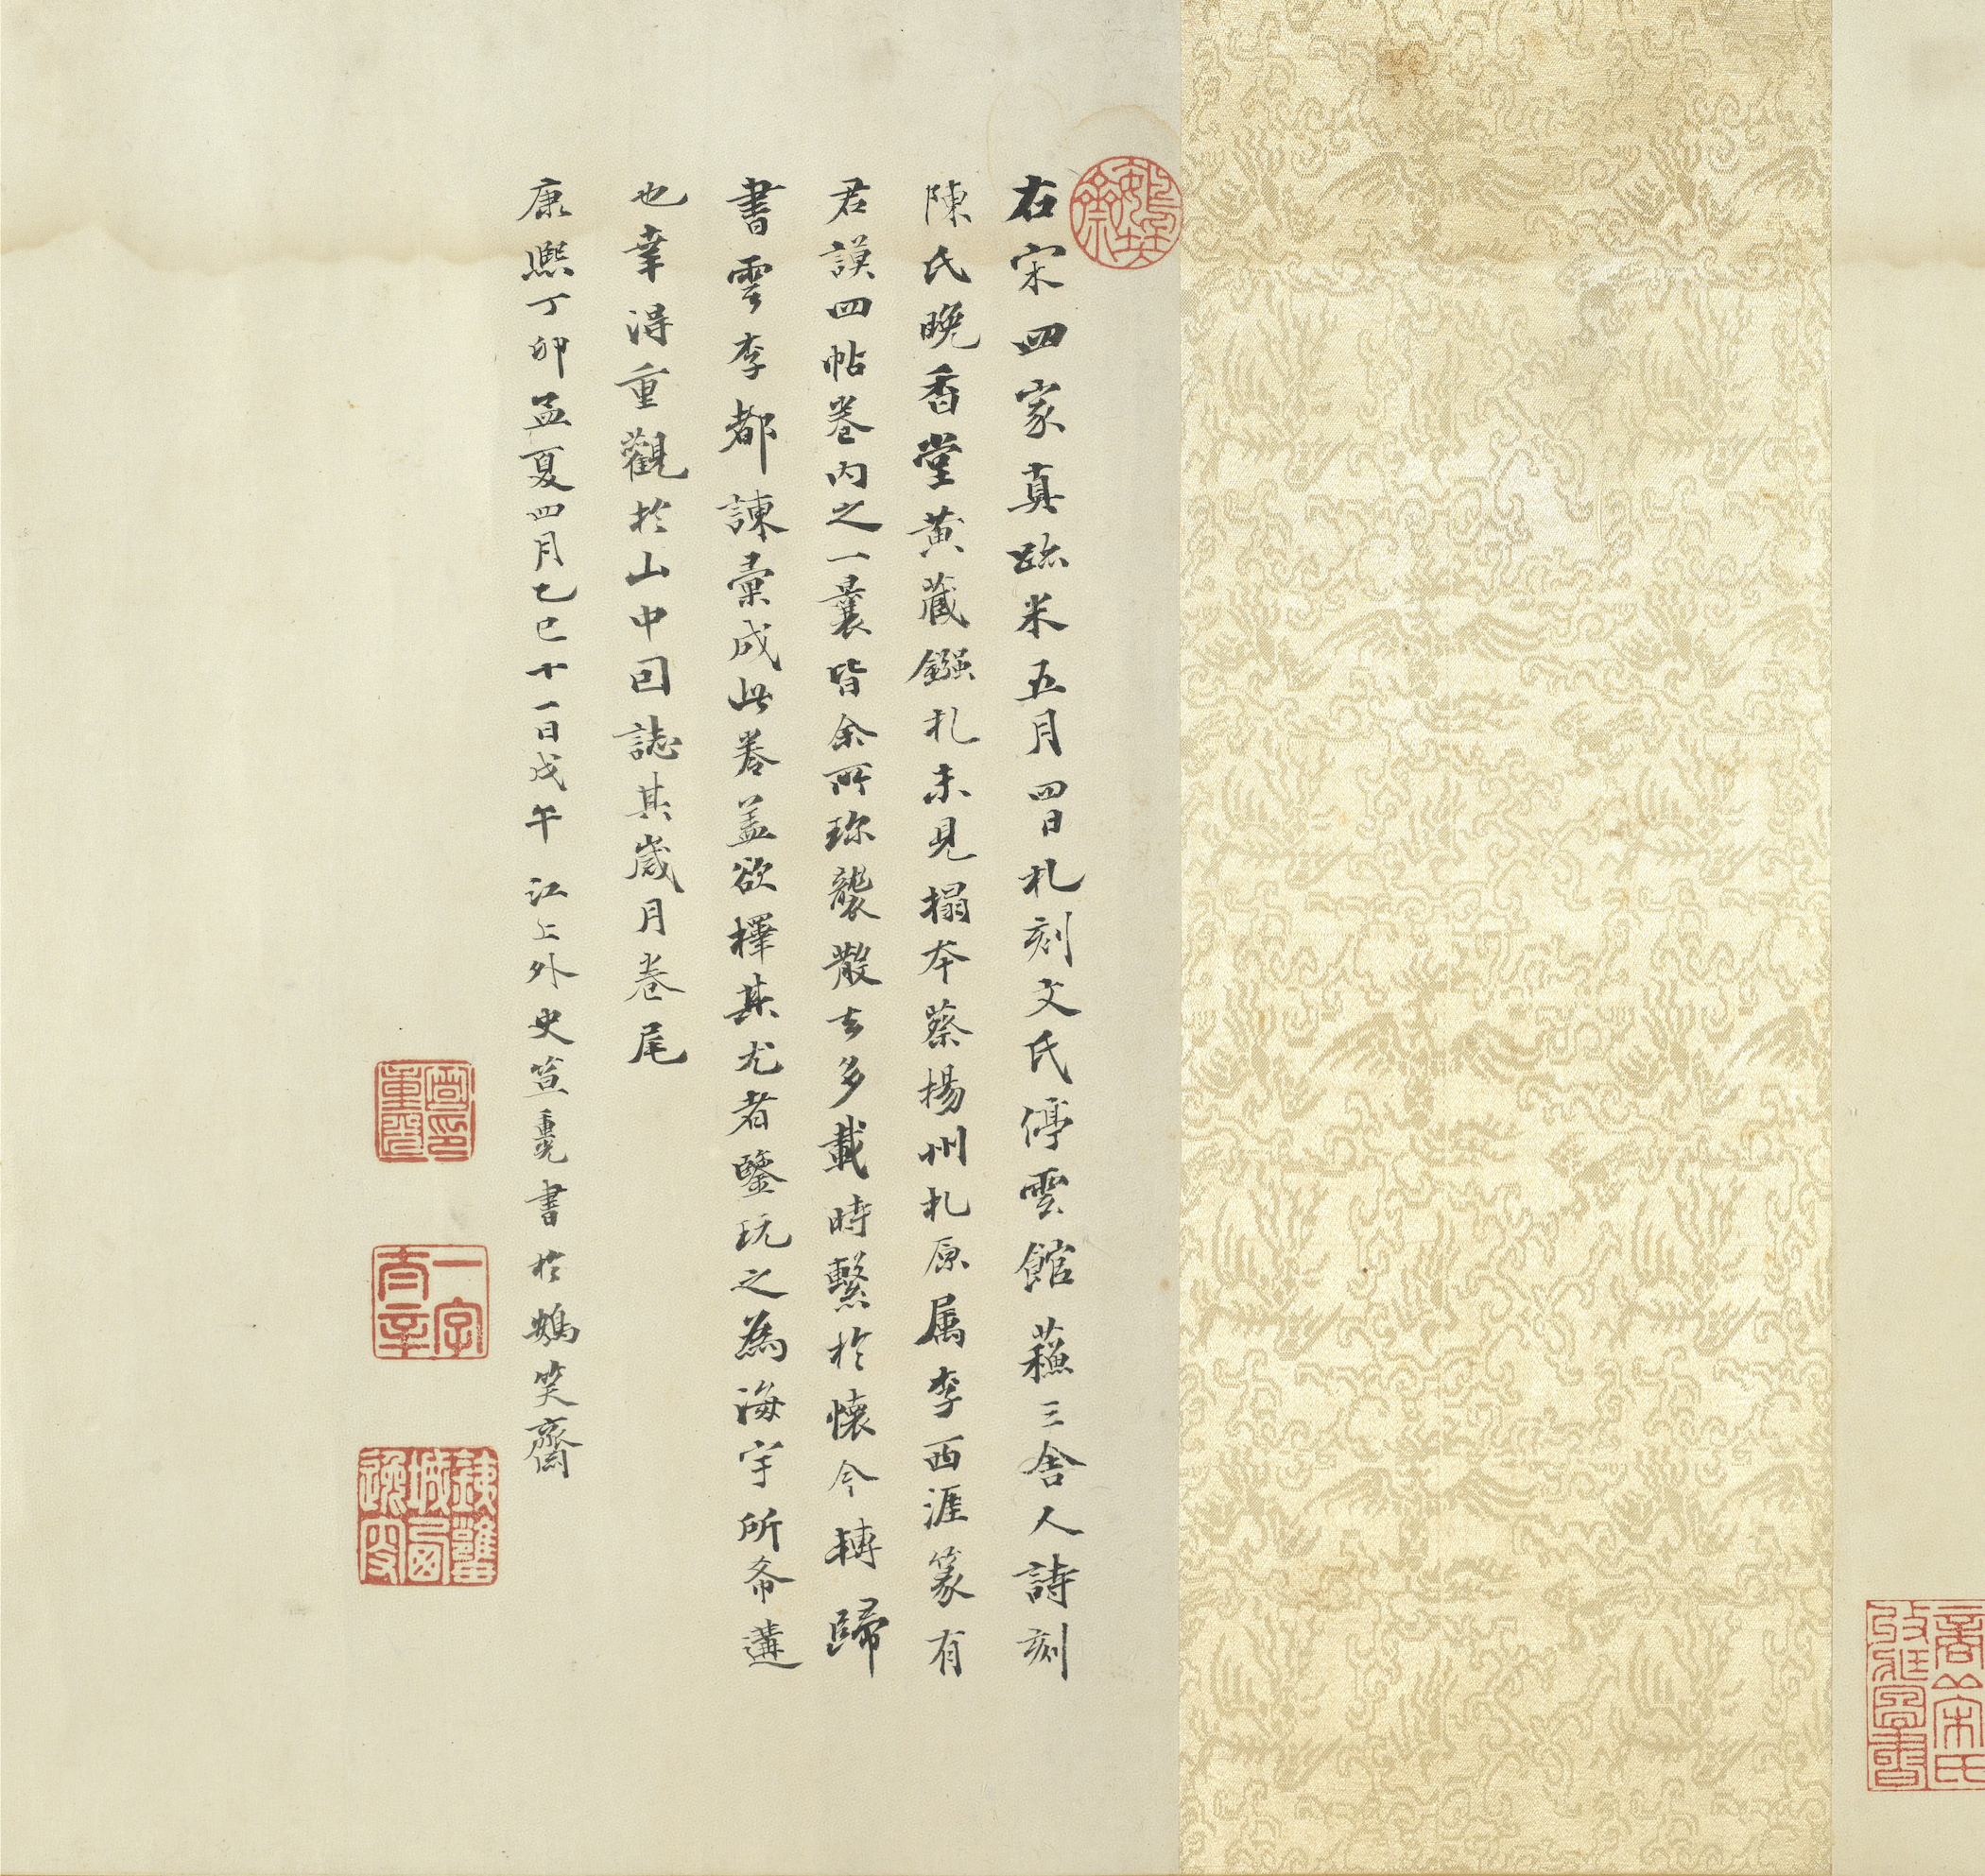 右宋四家真跡米五月四日札刻文氏停雲館蘓三舍人詩刻
陳氏晚香堂黄藏鏹札未見搨本蔡楊州札原属李西涯篆有
君謨四帖卷内之一曩皆余所珎襲散去多載時繫於懷今轉歸
書雲李都諫彙成此卷盖欲擇其尤者鑒玩之為海宇所希遘
也幸淂重觀於山中因誌其嵗月卷尾
康熈丁卯孟夏四月乙巳十一日戊午 江上外史笪重光書於鵝笑齋
笪重光印
商丘宋氏收藏圖書